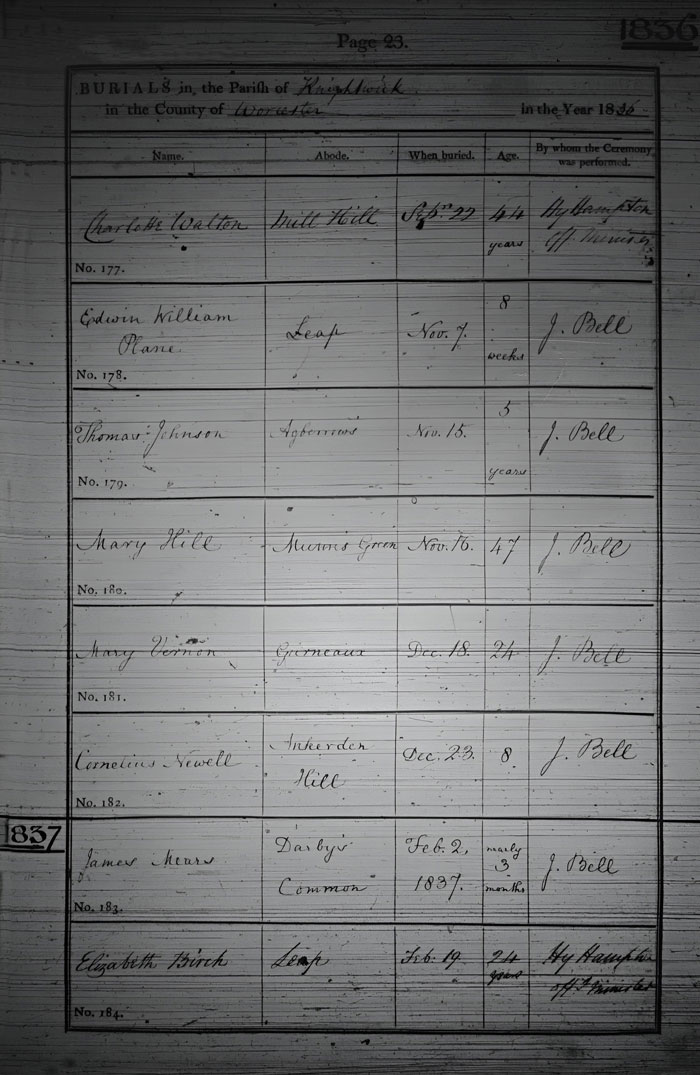 1836
Page 23.
BURIALS in the Parish of Knightwick
in the County of Worcester in the Year 1836
Name. Abode. When buried. Age. By whom the Ceremony was performed.
Charlotte Walton Mill Hill Sepr. 22 44 years Hy Hampton off. Minister
No. 177.
Edwin William Plane Leap Nov. 7. 8 weeks J. Bell
No. 178.
Thomas Johnson Agberrows Nov. 15. 5 years J. Bell
No. 179.
Mary Hill Green Nov. 16. 47 J. Bell
No. 180.
Mary Vernon Gurneaux Dec. 18. 24 J. Bell
No. 181.
Cornelius Newell Ankerden Hill Dec. 23. 8 J. Bell
No. 182.
1837
James Mears Darby's Common Feb. 2, 1837. nearly 3 months J. Bell
No. 183.
Elizabeth Birch Leap Feb. 19 24 years Hy Hampton offg Minister
No. 184.